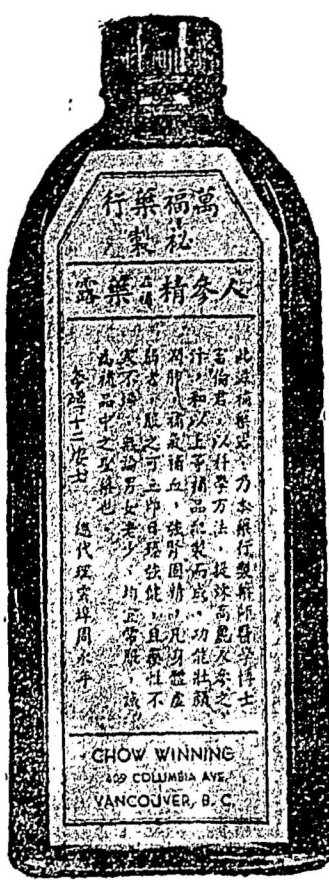 萬福藥行
秘製
人參精補藥露
此茲補藥露、乃本藥行製藥師醫學博士
君、以科學方法、提煉高麗人參之
汁、和以上等補品配製而成、功能壯顏
潤肺、補氣補血、強腎固精、凡身體虛
弱者、服之可立即日臻強健、且藥性不
不燥、無論男女老少、均宜常服、誠
為補品中之至緻也
每磅十二 總代理雲埠周永年
CHOW WINNING
409 COLUMBIA AVE,
VANCOUVER, B. C.